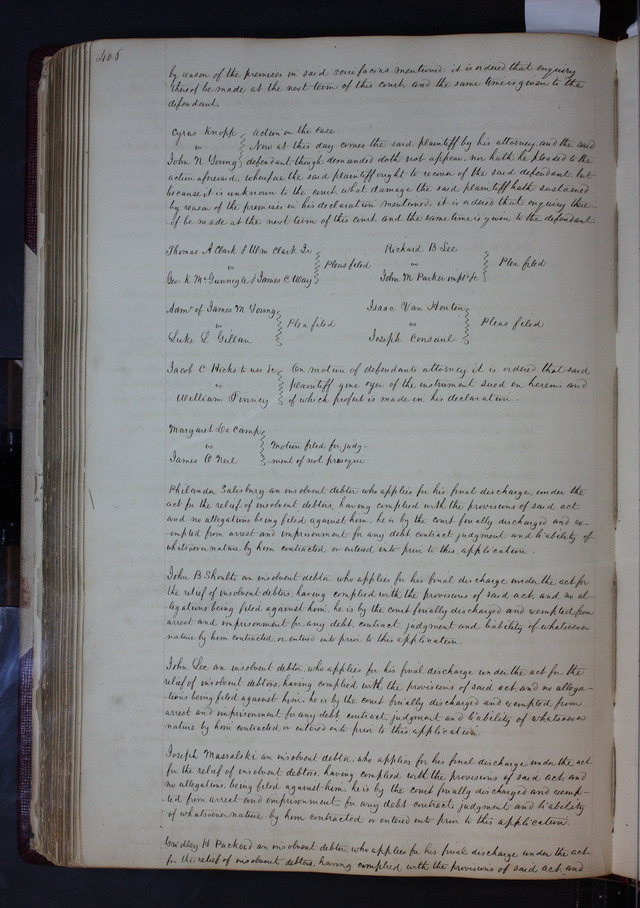 406
by reason of the premises in said scire facias mentioned: it is ordered that enquiry
thereof be made at the next term of this court. and the same time is given to the
defendant.
Cyrus Knopp action on the case
vs Now at this day comes the said plaintiff by his attorney, and the said
John N Young defendant though demanded doth not appear, nor hath he pleaded to the
action aforesaid, wherefore the said plaintiff ought to recover of the said defendant. but
because it is unknown to the court, what damage the said plaintiff hath sustained
by reason of the premises in his declaration mentioned, it is ordered that enquiry there-
of be made at the next term of this court and the same time is given to the defendant
Thomas A Clark & Wm Clark Jr
vs Pleas filed
Geo. K McGunnegle & James C Way
Richard B Lee
vs Plea filed
John M Parker impld &c
Admr of James M Young
vs Plea filed
Luke L
Isaac Van Houten
vs Pleas filed
Joseph Consaul
Jacob C Hicks to use &c On motion of defendants attorney it is ordered that said
vs plaintiff give oyer of the instrument sued on herein and
William Finney of which profert is made in his declaration.
Margaret De Camp
vs Motion filed for judg-
James O Neil ment of nol prosequi
Philander Salisbury an insolvent debtor who applies for his final discharge, under the
act for the relief of insolvent debtors, having complied with the provisions of said act
and no allegations being filed against him. he is by the court finally discharged and ex-
empted from arrest and imprisonment for any debt contract judgment and liability of
whatsoever nature by him contracted or entered into prior to this application.
John B Shoults an insolvent debtor, who applies for his final discharge under the act for
the relief of insolvent debtors, having complied with the provisions of said act, and no al-
legations being filed against him, he is by the court finally discharged and exempted from
arrest and imprisonment for any debt, contract, judgment and liability of whatsoever
nature by him contracted, or entered into prior to this application.
John Lee an insolvent debtor, who applies for his final discharge under the act for the
relief of insolvent debtors, having complied with the provisions of said act, and no allega-
tions being filed against him, he is by the court finally discharged and exempted from
arrest and imprisonment for any debt, contract, judgment and liability of whatsoever
nature by him contracted or entered into prior to this application
Joseph Massalski an insolvent debtor, who applies for his final discharge under the act
for the relief of insolvent debtors, having complied with the provisions of said act, and
no allegations, being filed against him, he is by the court finally discharged and exemp-
ted from arrest and imprisonment for any debt contract judgment and liability
of whatsoever nature by him contracted or entered into prior to this application.
Gridley H Packard an insolvent debtor, who applies for his final discharge under the act
for the relief of insolvent debtors, having complied with the provisions of said act, and